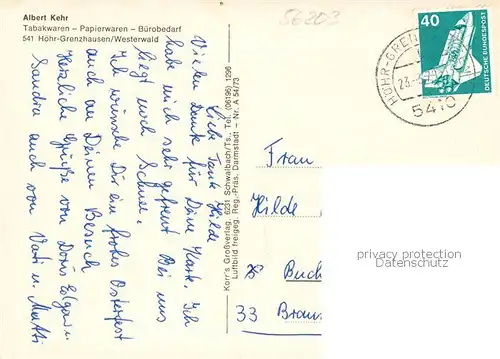 Albert Kehr
Tabakwaren – Papierwaren – Bürobedarf
541 Höhr-Grenzhausen/Westerwald
56203
Liebe Tante Hilde
Vielen Dank für Deine Karte. Ich
habe mich sehr gefreut. Bei uns
liegt noch Schnee.
Ich wünsche Dir ein frohes Osterfest
auch an Deinen Besuch
Herzliche Grüße von Doris Edgar u.
Sandra auch von Vati u. Mutti
Korr's Großverlag, 6231 Schwalbach/Ts., Tel. (06196) 1296
Luftbild freigeg. Reg.-Präs. Darmstadt – Nr. A 54/73
HÖHR-GREN
23.
5410
40
DEUTSCHE BUNDESPOST
Frau
Hilde
Buch
33 Braun
privacy protection
Datenschutz